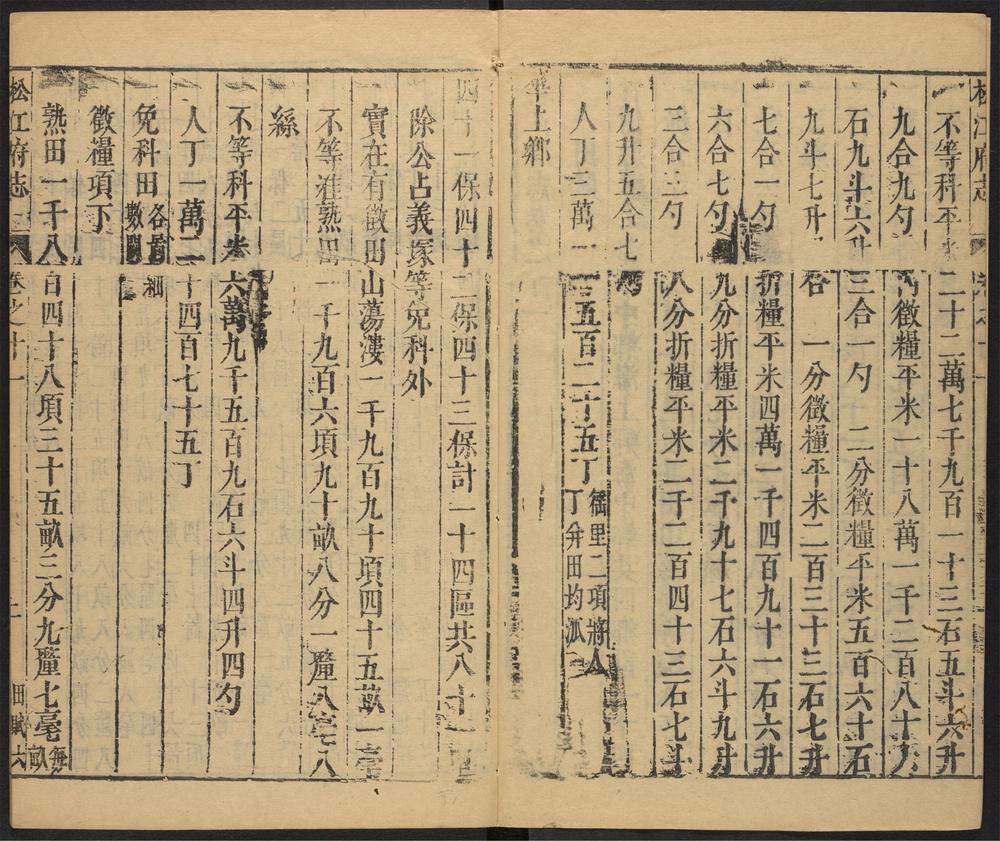 松江府志
不等科平米二十二萬七千九百一十三石五斗六升
九合九勺 內徵糧平米一十八萬一千二百八十九
石九斗六升三合一勺 二分徵糧平米五百六十石
九斗七升 合 一分徵糧平米二百三十三石七升
七合一勺 折糧平米四萬一千四百九十一石六升
六合七勺 九分折糧平米二千九十七石六斗九升
三合三勺 八分折糧平米二千二百四十三石七斗
九升五合七勺
人丁三萬一 五百二十五丁 里二項將人丁弁田均派
上鄉
四十一保四十二保四十三保計一十四區共八十一
除公占義塚等免科外
實在有徵田山蕩漊一千九百九十項四十五畝一毫
不等准熟田一千九百六項九十畝八分一釐八毫八
絲
不等科平米六萬九千五百九石六斗四升四勺
人丁一萬二十四百七十五丁
免科田 各 數 細
徵糧項下
熟田一千八百四十八項三十五畝三分九釐七毫 每畝
松江府志 卷之十一 田賦六